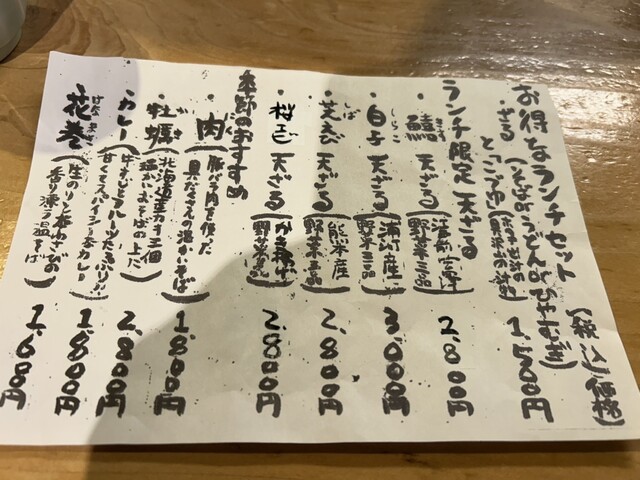 お得なランチセット (税込)価格
・ざる (そばorうどんorひやむぎ)
とこづゆ 1,500円
ランチ限定 天ざる
・鱚 きす 天ざる 野菜三品 2,800円
・白子 しらこ 天ざる 産 野菜三品 3,000円
・芝えび しば 天ざる 熊本産 野菜三品 2,800円
・桜えび 天ざる かき揚げ 野菜 品 2,800円
季節のおすすめ
・肉 にく (豚バラ肉を使った 具だくさんの温かいそば) 1,800円
・牡蠣 かき (北海道産かき三個 温かいおそばの上に) 2,800円
・カレー 甘くてスパイシーなカレー 1,800円
・花巻 はなまき (生のりと本わさびの 香り漂う温そば) 1,600円